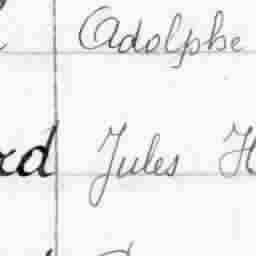 Adolphe
rd Jules H